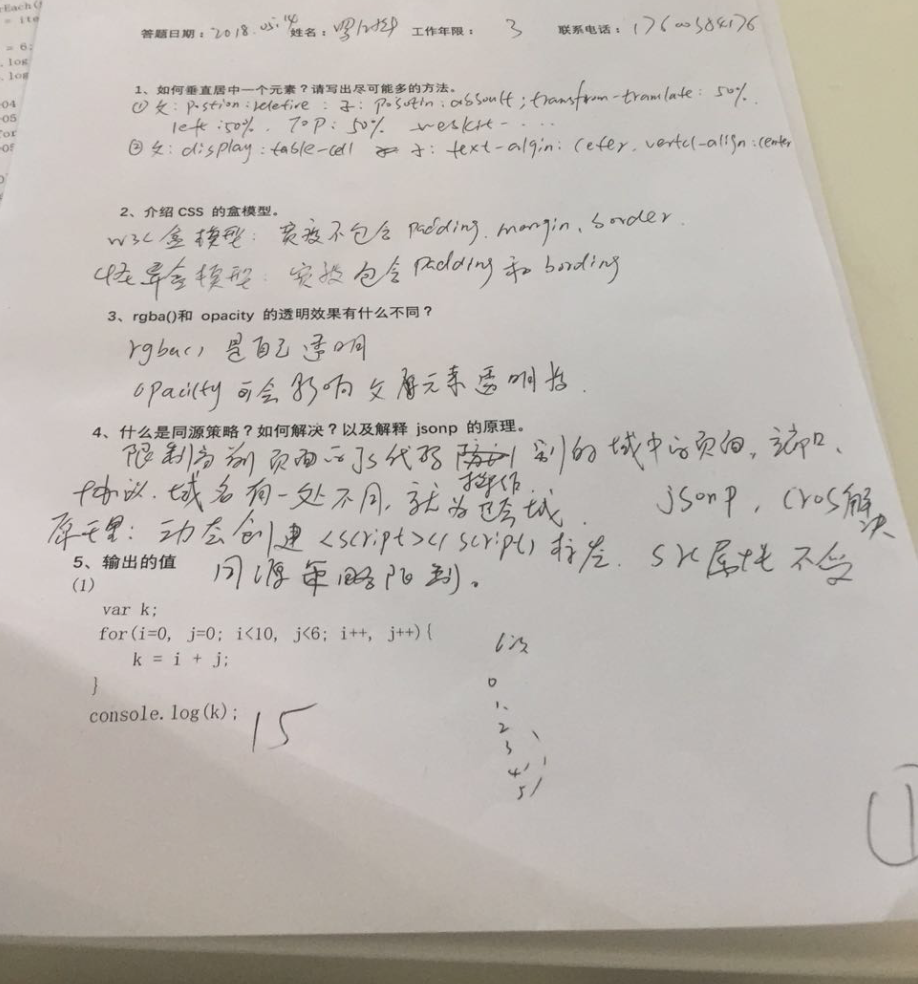 答题日期：2018.05.14 姓名： 工作年限： 3 联系电话：17600384176
1、如何垂直居中一个元素？请写出尽可能多的方法。
① 父：postion:relefire：子：posotin:absoult；transfrom-tramlate：50%.
left:50%. TOP：50% weskit-....
② 父：display：table-cell 子：text-algin：cefer. vertcl-align：center
2、介绍 CSS 的盒模型。
W3C盒模型：宽度不包含 padding、margin、border.
怪异盒模型：宽度包含 padding 和 bording
3、rgba()和 opacity 的透明效果有什么不同？
rgba() 是自己透明
opacity 可会影响父层元素透明
4、什么是同源策略？如何解决？以及解释 jsonp 的原理。
限制当前页面的js代码操作别的域中的页面，端口、
协议、域名有一处不同，就为跨域. jsonp，cros解决
原理：动态创建 <script></script> 标签. src属性不受
5、输出的值 同源策略限制。
(1)
var k;
for(i=0, j=0; i<10, j<6; i++, j++){
k = i + j;
}
console.log(k); 15
6次
0
1
2
3
4
5